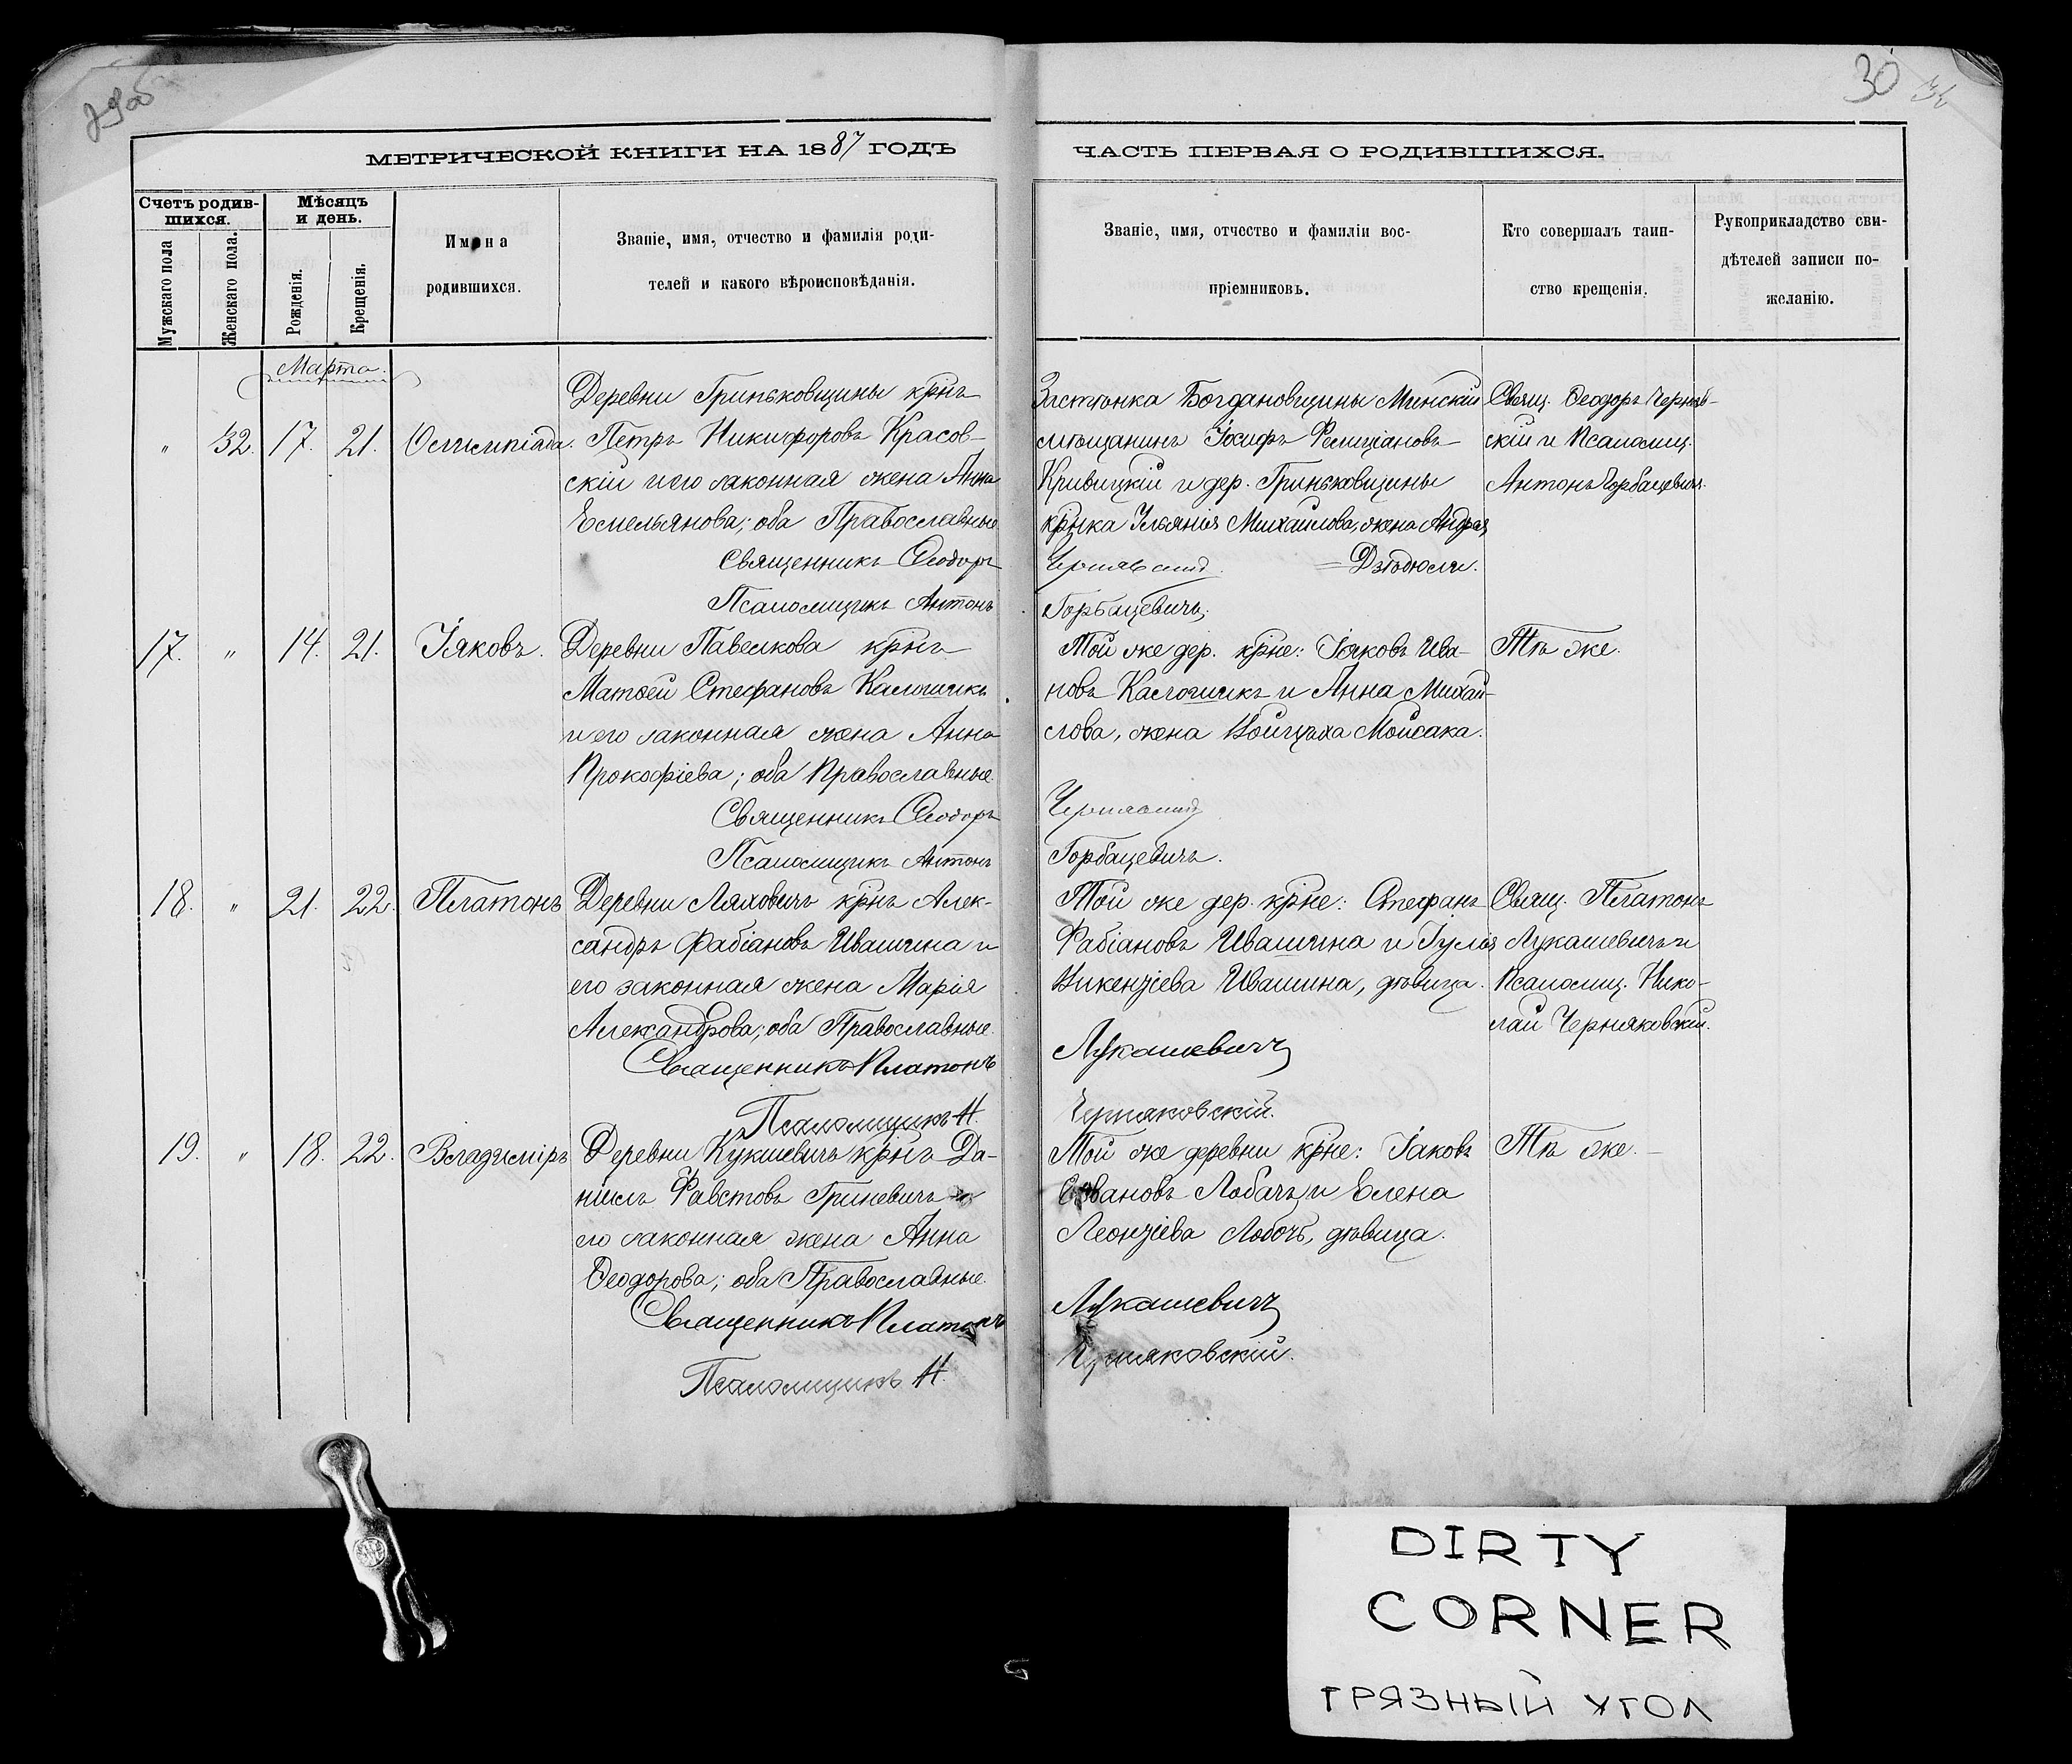 29об
30
МЕТРИЧЕСКОЙ КНИГИ НА 1887 ГОДЪ
ЧАСТЬ ПЕРВАЯ О РОДИВШИХСЯ.
Счетъ родив-
шихся.
Мужскаго пола
Женскаго пола.
Мѣсяцъ
и день.
Рожденія.
Крещенія.
Имена
родившихся.
Званіе, имя, отчество и фамилія роди-
телей и какого вѣроисповѣданія.
Званіе, имя, отчество и фамиліи вос-
пріемниковъ.
Кто совершалъ таин-
ство крещенія.
Рукоприкладство сви-
дѣтелей записи по-
желанію.
Марта.
" 32. 17. 21. Олимпіада.
Деревни Гриньковщины крнъ
Петръ Никифоровъ Красов-
скій и его законная жена Анна
Емельянова; оба Православные
Священникъ Ѳеодоръ
Псаломщикъ Антонъ
Застѣнка Богдановщины Минскій
мѣщанинъ Іосифъ Фелиціановъ
Кривицкій и дер. Гриньковщины
крнка Уліанія Михайлова, жена Андрея
Чернявскій. Дзѣдюли.
Горбацевичъ.
Свящ. Ѳеодоръ Черняв-
скій и Псаломщ.
Антонъ Горбацевичъ.
17. " 14. 21. Іяковъ.
Деревни Павелкова крнъ
Матѳей Стефановъ Калошикъ
и его законная жена Анна
Прокофіева; оба Православные.
Священникъ Ѳеодоръ
Псаломщикъ Антонъ
Той же дер. крне: Іяковъ Ива-
новъ Калошикъ и Анна Михай-
лова, жена Войцѣха Мойсака.
Чернявскій
Горбацевичъ.
Тѣ же.
18. " 21. 22. Платонъ
Деревни Ляховичъ крнъ Алек-
сандръ Фабіановъ Ивашина и
его законная жена Марія
Александрова; оба Православные.
Священникъ Платонъ
Псаломщикъ Н.
Той же дер. крне: Стефанъ
Фабіановъ Ивашина и Іулія
Викенціева Ивашина, дѣвица.
Лукашевичъ
Черняковскій.
Свящ. Платонъ
Лукашевичъ и
Псаломщ. Нико-
лай Черняковскій.
19. " 18. 22. Владиміръ
Деревни Кукшевичъ крнъ Да-
ніилъ Фавстовъ Гриневичъ и
его законная жена Анна
Ѳеодорова; оба Православные.
Священникъ Платонъ
Псаломщикъ Н.
Той же деревни крне: Іаковъ
Лобачъ и Елена
Леонціева Лобачъ, дѣвица.
Лукашевичъ
Черняковскій.
Тѣ же.
DIRTY
CORNER
ГРЯЗНЫЙ УГОЛ